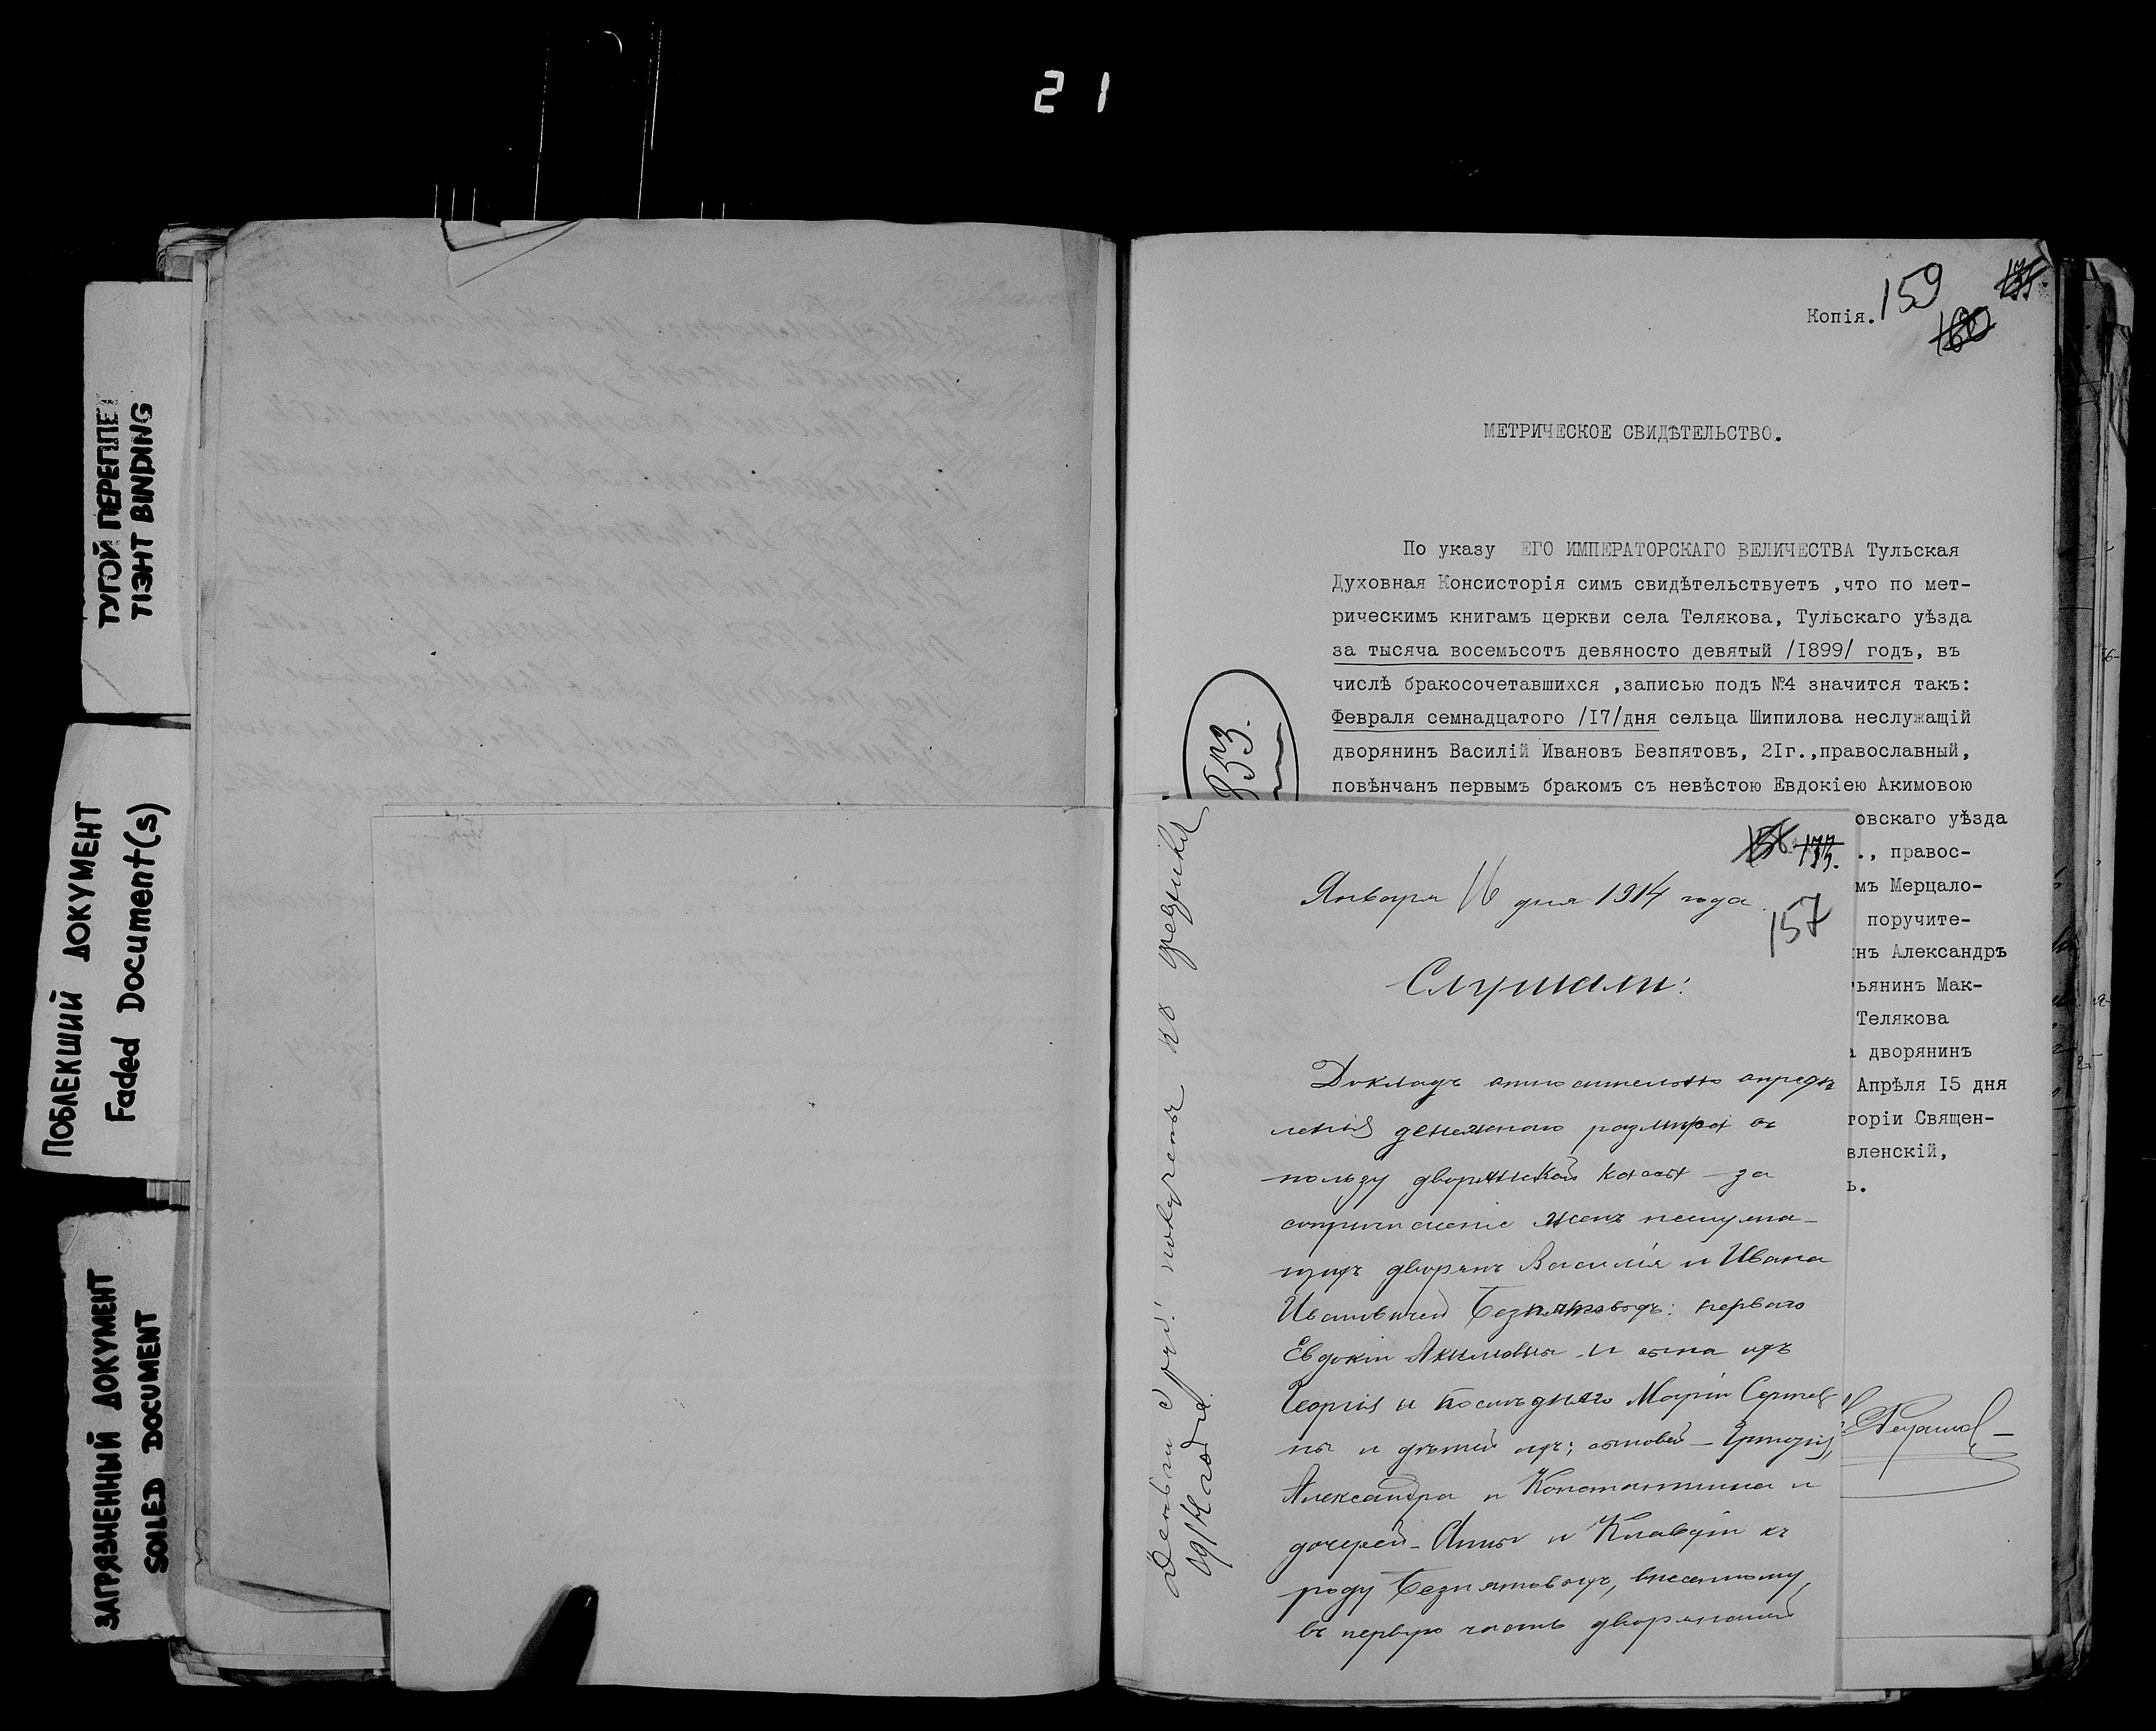 21
ТУГОЙ ПЕРЕПЛЕТ
TIЭHT BINDING
ПОБЛЕКШИЙ ДОКУМЕНТ
Faded Document(s)
ЗАГРЯЗНЕННЫЙ ДОКУМЕНТ
SOILED DOCUMENT
Копія.
159
160
МЕТРИЧЕСКОЕ СВИДѢТЕЛЬСТВО.
По указу ЕГО ИМПЕРАТОРСКАГО ВЕЛИЧЕСТВА Тульская
Духовная Консисторія симъ свидѣтельствуетъ ,что по мет-
рическимъ книгамъ церкви села Телякова, Тульскаго уѣзда
за тысяча восемьсотъ девяносто девятый /I899/ годъ, въ
числѣ бракосочетавшихся ,записью подъ №4 значится такъ:
Февраля семнадцатого /I7/дня сельца Шипилова неслужащій
дворянинъ Василій Ивановъ Безпятовъ, 2Iг.,православный,
повѣнчан первымъ бракомъ съ невѣстою Евдокіею Акимовою
овскаго уѣзда
., правос-
мъ Мерцало-
поручите-
нъ Александръ
ьянинъ Мак-
Телякова
дворянинъ
Апрѣля I5 дня
торіи Священ-
вленскій,
ъ.
853.
157
Января 16 дня 1914 года
Слушали:
Докладъ относительно опредѣ
ленія денежнаго размѣра въ
пользу дворянской кассы — за
сопричисленіе женъ неслужа-
щихъ дворянъ Василія и Ивана
Ивановичей Безпятовыхъ: перваго
Евдокіи Акимовны и сына ихъ
Георгія и послѣдняго Маріи Сергѣев
ны и дѣтей ихъ: сыновей —
Александра и Константина и
дочерей — Анны и Клавдіи къ
роду Безпятовыхъ, внесенному
въ первую часть дворянской